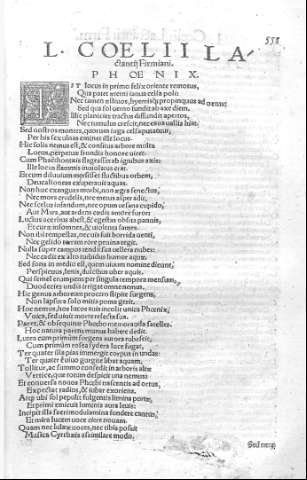 558
L. COELII LA-
ctantij Firmiani.
PHOENIX.
EST locus in primo felix oriente remotus,
Qua patet æterni ianua celsa poli.
Nec tamen æstiuos, hyemisq́; propinquus ad ortus
Sed qua sol uerno fundit ab axe diem.
Illic planicies tractus diffundit apertos,
Nec tumulus crescit, nec caua uallis hiat.
Sed nostros montes, quorum iuga celsa putantur,
Per bis sex ulnas eminet ille locus.
Hic solis nemus est, & consitus arbore multa
Lucus, perpetuæ frondis honore uiret.
Cum Phaëthontæis flagrasset ab ignibus axis
Ille locus flammis inuiolatus erat.
Et cum diluuium mersisset fluctibus orbem,
Deucalioneas exuperauit aquas.
Non huc exangues morbi, non ægra senectus,
Nec mors crudelis, nec metus asper adit.
Nec scelus infandum, nec opum uesana cupido,
Aut Mars, aut ardens cædis amore furor.
Luctus acerbus abest, & egestas obsita pannis,
Et curæ insomnes, & uiolenta fames.
Non ibi tempestas, nec uis furit horrida uenti,
Nec gelido terram rore pruina tegit.
Nulla super campos tendit sua uellera nubes:
Nec cadit ex alto turbidus humor aquæ.
Sed fons in medio est, quem uiuum nomine dicunt,
Perspicuus, lenis, dulcibus uber aquis.
Qui semel erumpens per singula tempora mensum,
Duodecies undis irrigat omne nemus.
Hic genus arboreum procero stipite surgens,
Non lapsura solo mitia poma gerit.
Hoc nemus, hos lucos auis incolit unica Phœnix,
Vnica, sed uiuit morte refecta sua.
Paret, & obsequitur Phœbo memoranda satelles.
Hoc natura parens munus habere dedit.
Lutea cum primum surgens aurora rubescit,
Cum primùm rosea sydera luce fugat,
Ter quater illa pias immergit corpus in undas:
Ter quater è uiuo gurgite libat aquam.
Tollitur, ac summo confedit in arboris altæ
Vertice, quæ totum despicit una nemus:
Et conuersa nouos Phœbi nascentis ad ortus,
Expectat radios, & iubar exoriens.
Atq; ubi sol pepulit fulgentis limina portæ,
Et primi emicuit luminis aura leuis:
Incipit illa sacri modulamina fundere cantus,
Et mira lucem uoce ciere nouam.
Quam nec ædoneæ uoces, nec tibia possit
Musica Cyrrhæis assimilare modis.
Sed neq;